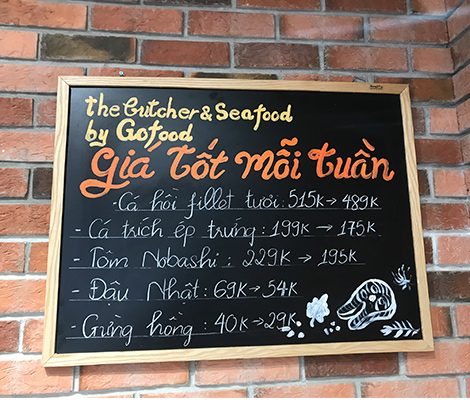 the Butcher & Seafood
by Gofood
Giá Tốt Mỗi tuần
- Cá hồi fillet tươi: 515K → 489K
- Cá trích ép trứng: 199K → 175K
- Tôm Nobashi: 229K → 195K
- Đậu Nhật: 69K → 54K
- Gừng hồng: 40K → 29K